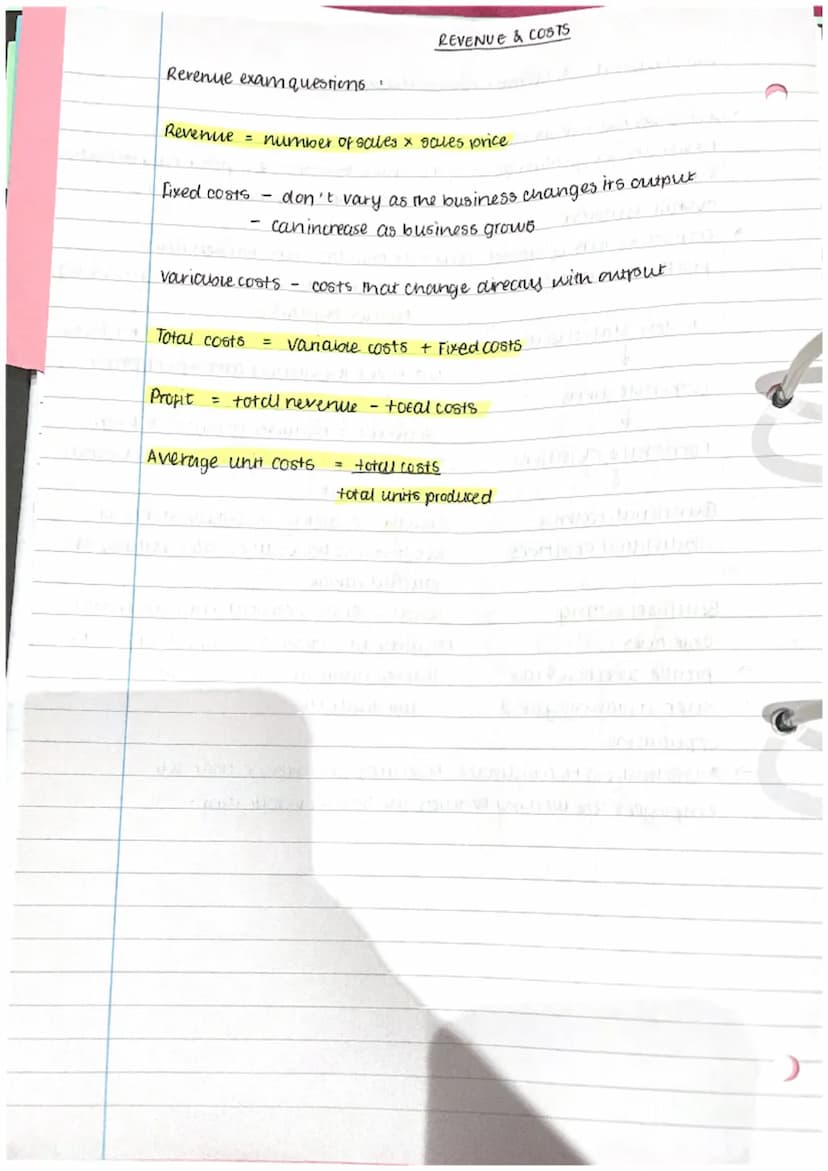 REVENUE & COSTS
Revenue exam questions
Revenue = number of sales x sales price
Fixed costs - don't vary as the business changes its output
- can increase as business grows
Variable costs - costs that change directly with output
Total costs = variable costs + Fixed costs
Profit = total revenue - total costs
Average unit costs = total costs
total units produced